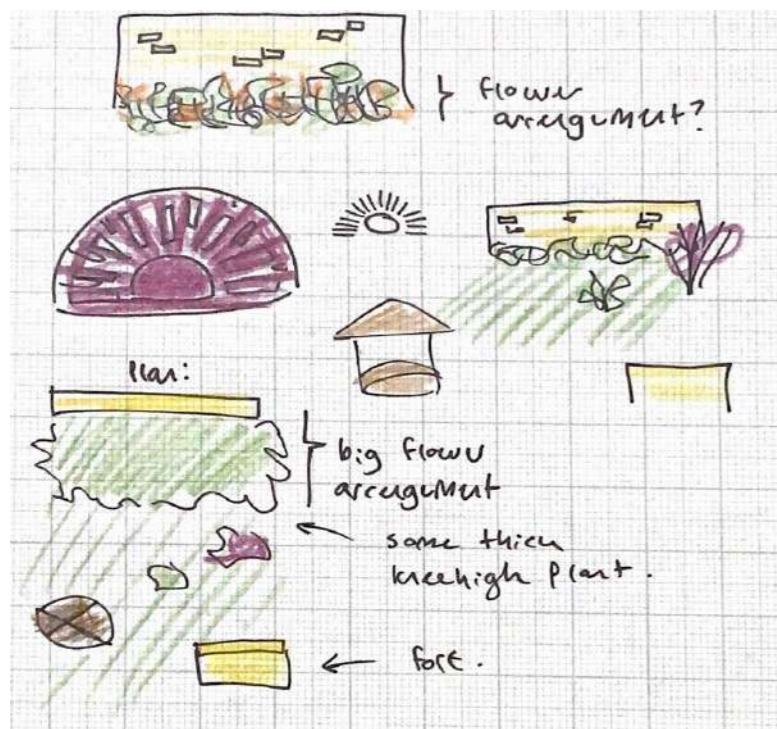 flower
arrangement?
Plan:
big flower
arrangement
some thick
kneehigh plant.
fort.